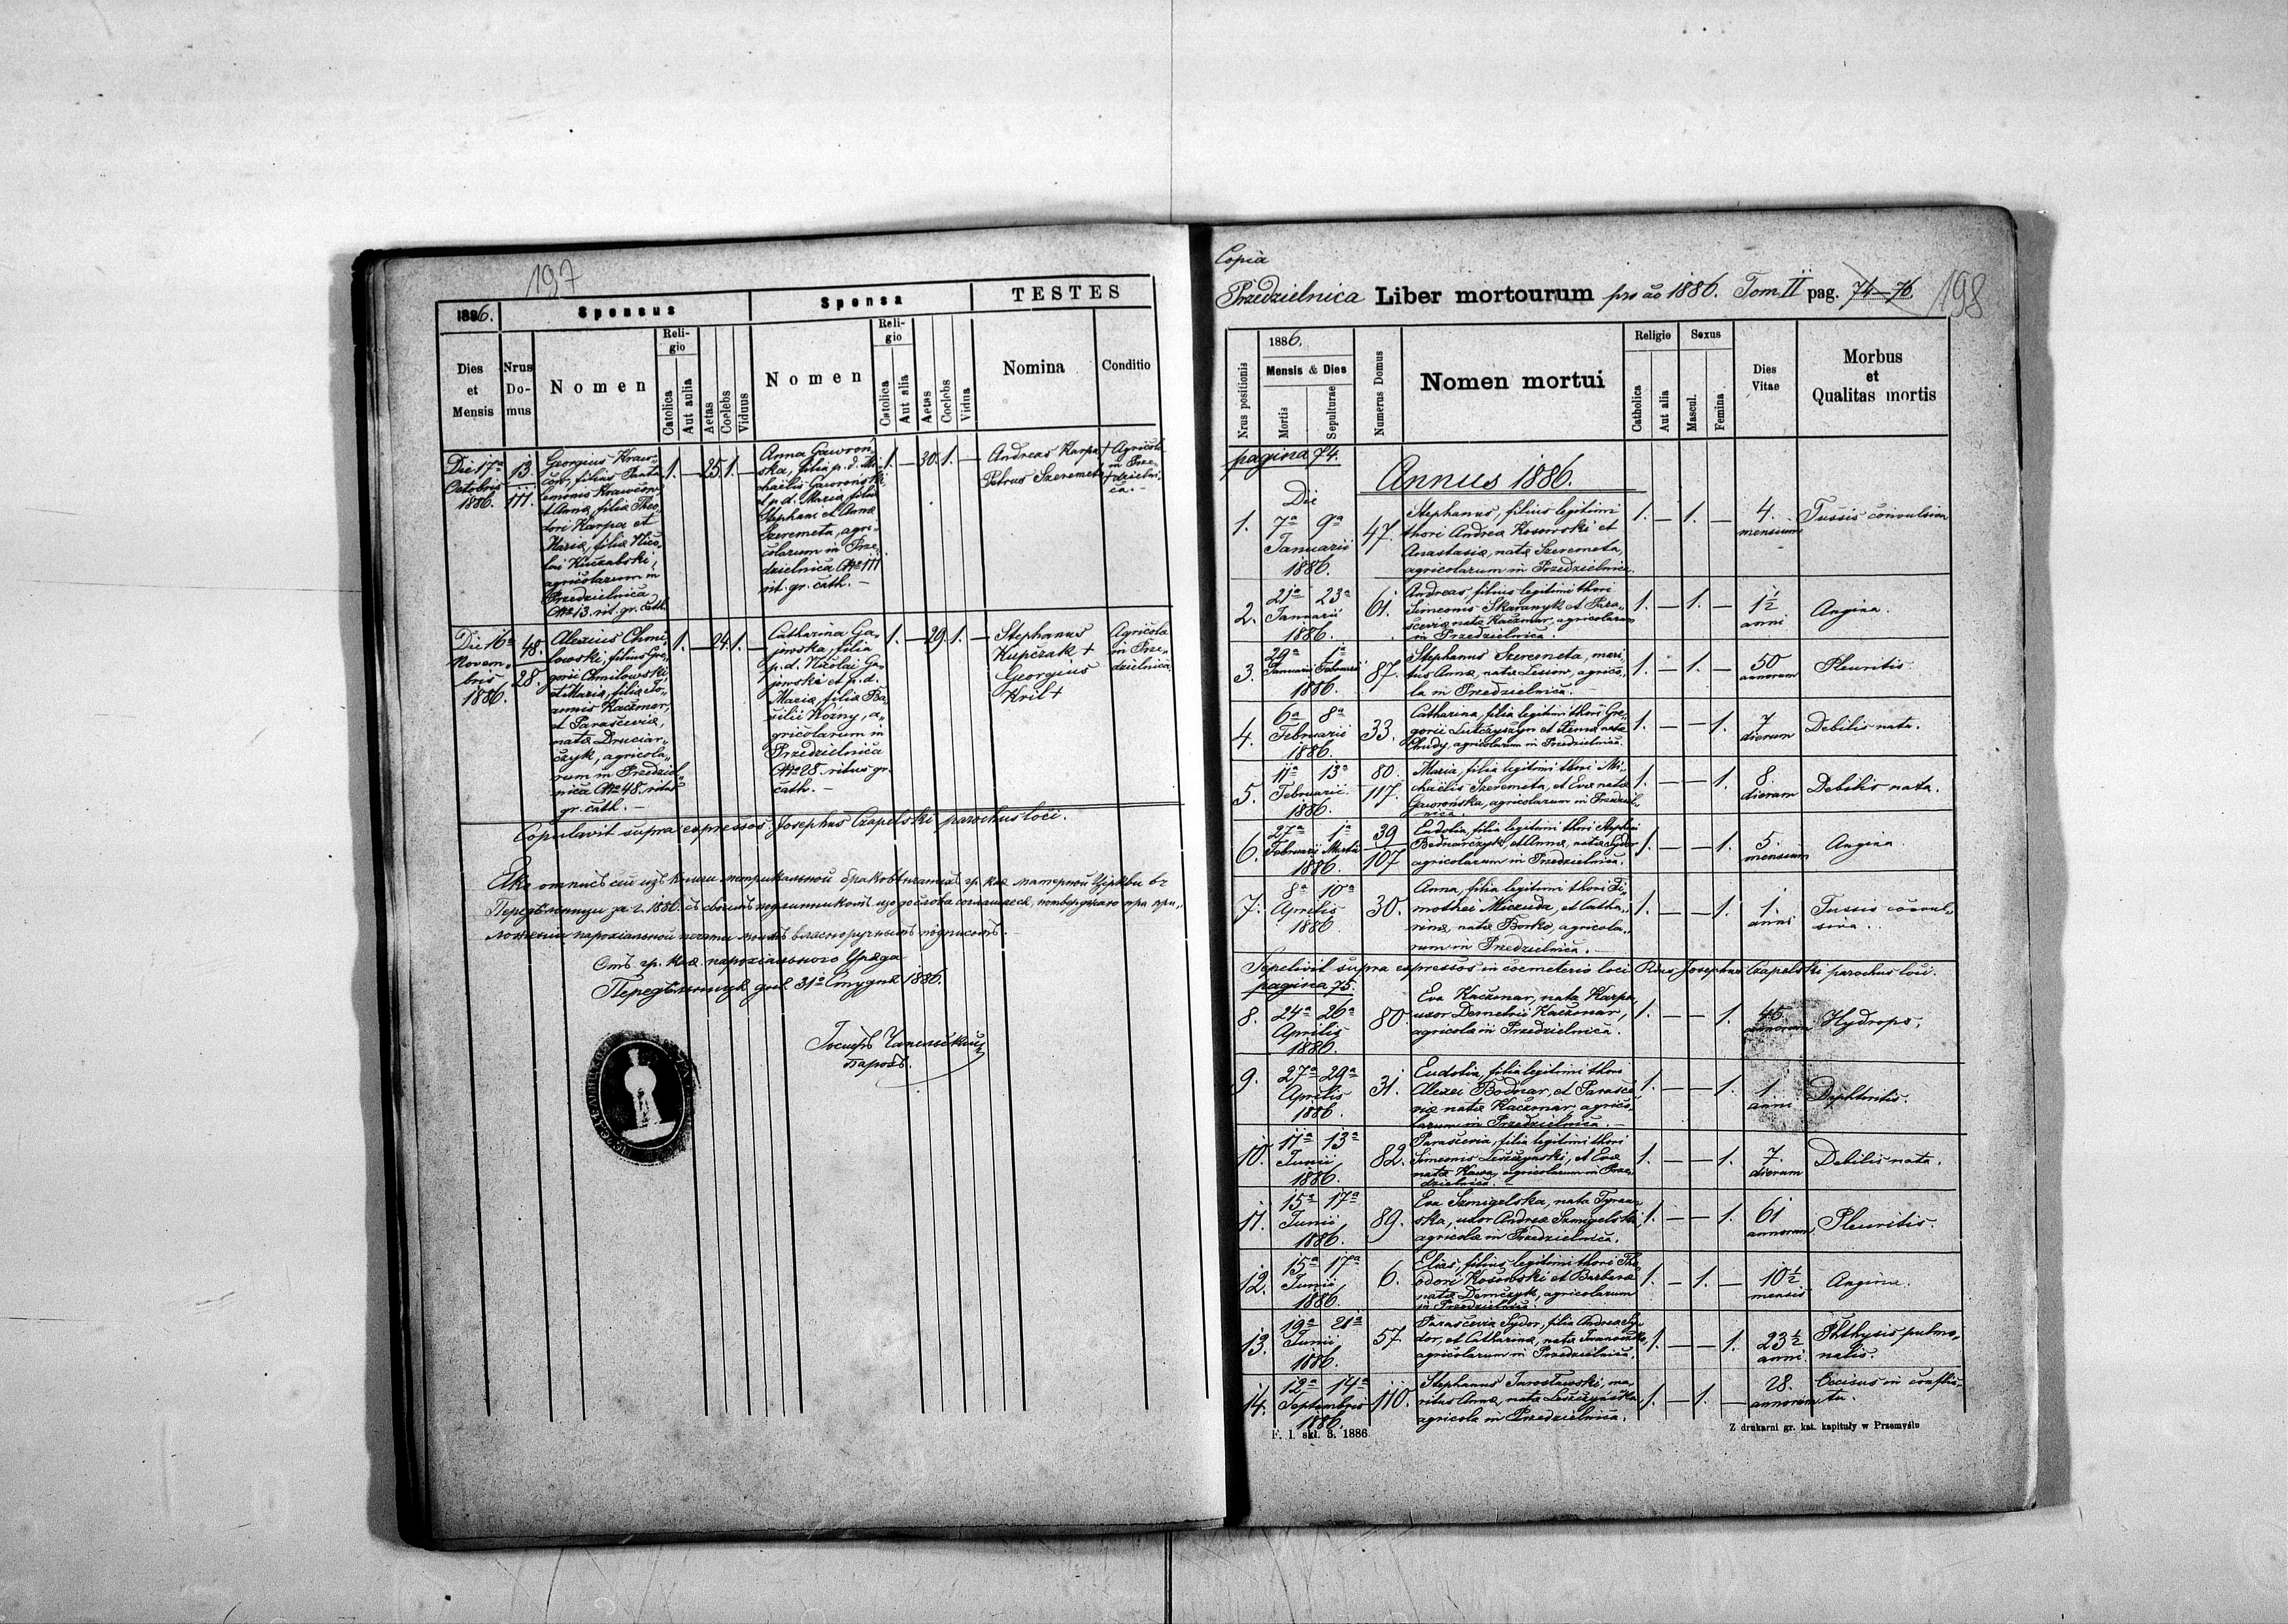 197
1886.
Sponsus
Sponsa
TESTES
Dies et Mensis
Nrus Domus
Nomen
Religio
Catolica
Aut aulia
Aetas
Coelebs
Viduus
Nomen
Religio
Catolica
Aut alia
Aetas
Coelebs
Vidua
Nomina
Conditio
Die 17ª
Octobris
1886.
13.
111.
Georgius Kraw-
filius Panta
et Anna, filia Theo-
dori Karpa et
Maria, filia Nico-
lai
agricolarum in
Przedzielnica
Nro 13. rit. gr. cath.
1. — 25. 1. —
Anna Gawroń-
ska, filia p. d. Mi-
chaëlis Gawroński
et p. d. Maria, filia
Stephani et Anna
Szeremeta, agri-
colarum in Prze-
dzielnica Nro 111
rit. gr. cath. —
1. — 30. 1. —
Andreas Karpa +
Petrus Szeremeta +
Agricola
in Prze-
dzielni-
ca. —
Die 16ª
Novem-
bris
1886.
48.
28.
Alexius Chmi-
lowski, filius Gre-
gorii Chmilowski
et Maria, filia Jo-
annis Kaczmar,
et Parascevia,
nata Druciar-
czyk, agricola-
rum in Przedziel-
nica Nro 48. ritus
gr. cath. —
1. — 24. 1. —
Catharina Ga-
jewska, filia
p. d. Nicolai Ga-
jewski et p. d.
Maria, filia Ba-
silii Kozny, a-
gricolarum in
Przedzielnica
Nro 28. ritus gr.
cath. —
1. — 29. 1. —
Stephanus
Kupczak +
Georgius
Kril +
Agricola
in Prze-
dzielnica
Copulavit supra expressos: Josephus Czapelski parochus loci.
отпись сей изъ книги метрикальной гр. кає. матерной Церкви въ
за г. 1886. съ своимъ подлинникомъ
парохіальной печати
Отъ гр. каѳ. парохіального Уряда
дня 31ª Студня 1886.
Іосифъ
парохъ.
Copia
Przedzielnica Liber mortourum pro ao 1886. Tom II pag. 74—76.
198
Nrus positionis
1886.
Mensis & Dies
Mortis
Sepulturae
Numerus Domus
Nomen mortui
Religio
Catholica
Aut alia
Sexus
Mascul.
Femina
Dies
Vitae
Morbus
et
Qualitas mortis
pagina 74.
Annus 1886.
Die
1. 7ª 9ª Januarii 1886. 47.
Stephanus, filius legitimi
thori Andrea Kosowski et
Anastasia, nata Szeremeta,
agricolarum in Przedzielnica.
1. — 1. — 4. mensium Tussis convulsiva
2. 21ª 23ª Januarii 1886. 61.
Andreas, filius legitimi thori
Simeonis Skaranyk et Para-
scevia nata Kaczmar, agricolarum
in Przedzielnica.
1. — 1. — 1½ anni Angina.
3. 29ª Januarii 1ª Februarii 1886. 87.
Stephanus Szeremeta, mari-
tus Anna, nata Lesiow, agrico-
la in Przedzielnica. —
1. — 1. — 50 annorum Pleuritis
4. 6ª 8ª Februarii 1886. 33.
Catharina, filia legitimi thori Gre-
gorii Lutczyszyn et Xenia nata
Chudy, agricolarum in Przedzielnica.
1. — — 1. 7 dierum Debilis nata.
5. 11ª 13ª Februarii 1886. 80. 117.
Maria, filia legitimi thori Mi-
chaëlis Szeremeta, et Eva nata
Gawrońska, agricolarum in Przedziel-
nica.
1. — — 1. 8. dierum Debilis nata.
6. 27ª Februarii 1ª Martii 1886. 39 107
Eudolia, filia legitimi thori Stephani
Bednarczyk, et Anna, nata Sydor
agricolarum in Przedzielnica.
1. — — 1. 5. mensium Angina
7. 8ª 10ª Aprilis 1886 30.
Anna, filia legitimi thori Ti-
mothei Miczuda, et Catha-
rina, nata Borko, agricola-
rum in Przedzielnica. —
1. — — 1. 1. anni Tussis convul-
siva.
Sepelivit supra expressos in coemeterio loci Rdus Josephus Czapelski parochus loci.
pagina 75.
8. 24ª 26ª Aprilis 1886. 80.
Eva Kaczmar, nata Karpa,
uxor Demetrii Kaczmar,
agricola in Przedzielnica.
1. — — 1. 45 annorum Hydrops.
9. 27ª 29ª Aprilis 1886. 31.
Eudolia, filia legitimi thori
Alexei Bodnar, et Parasce-
via nata Kaczmar, agrico-
larum in Przedzielnica. —
1. — — 1. 1 anni Diphteritis.
10. 11ª 13ª Junii 1886. 82.
Parascevia, filia legitimi thori
Simeonis Leszczynski, et Eva
nata Kawa, agricolarum in Prze-
dzielnica. —
1. — — 1. 7. dierum Debilis nata.
11. 15ª 17ª Junii 1886. 89.
Eva Szmigelska, nata Tyran-
ska, uxor Andrea Szmigelski,
agricola in Przedzielnica.
1. — — 1. 61 annorum Pleuritis.
12. 15ª 17ª Junii 1886. 6.
Elias, filius legitimi thori The-
odori Kosowski et Barbara
nata Demczyk, agricolarum
in Przedzielnica.
1. — 1. — 10½ mensis Angina.
13. 19ª 21ª Junii 1886. 57
Parascevia Sydor, filia Andrea Sy-
dor, et Catharina, nata Iwanowska,
agricolarum in Przedzielnica.
1. — — 1. 23½ anni. Phthysis pulmo-
nalis.
14. 12ª 14ª Septembris 1886. 110.
Stephanus Jarosławski, ma-
ritus Anna, nata Leszczyńska
agricola in Przedzielnica.
1. — 1. — 28. annorum Occisus in conflic-
tu.
F. 1. skł. 3. 1886
Z drukarni gr. kat. kapituły w Przemyślu